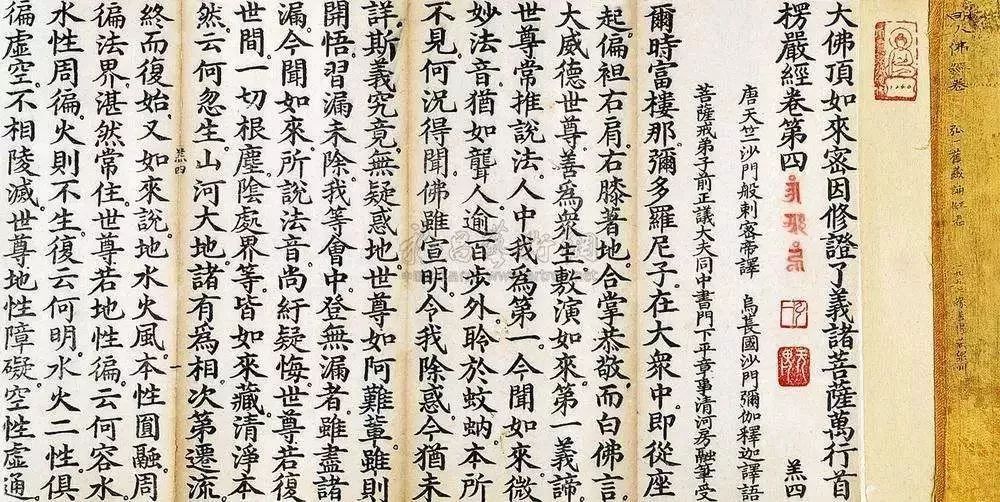 大佛頂如來密因修證了義諸菩薩萬行首
楞嚴經卷第四 羔四
唐天竺沙門般剌密帝譯 烏萇國沙門彌伽釋迦譯語
菩薩戒弟子前正議大夫同中書門下平章事清河房融筆受
爾時富樓那彌多羅尼子。在大衆中即從座
起。偏袒右肩。右膝著地。合掌恭敬。而白佛言
大威德世尊善爲衆生敷演如來第一義諦
世尊常推說法人中。我爲第一。今聞如來微
妙法音。猶如聾人。逾百步外。聆於蚊蚋。本所
不見。何況得聞。佛雖宣明。令我除惑。今猶未
詳。斯義究竟。無疑惑地。世尊如阿難輩。雖則
開悟。習漏未除。我等會中。登無漏者。雖盡諸
漏。今聞如來所說法音。尚紆疑悔。世尊若復
世間一切根塵陰處界等。皆如來藏。清淨本
然。云何忽生。山河大地。諸有爲相。次第遷流
羔四
終而復始。又如來說。地水火風。本性圓融。周
徧法界。湛然常住。世尊若地性徧。云何容水
水性周徧。火則不生。復云何明。水火二性。俱
徧虛空。不相陵滅。世尊地性障礙。空性虛通